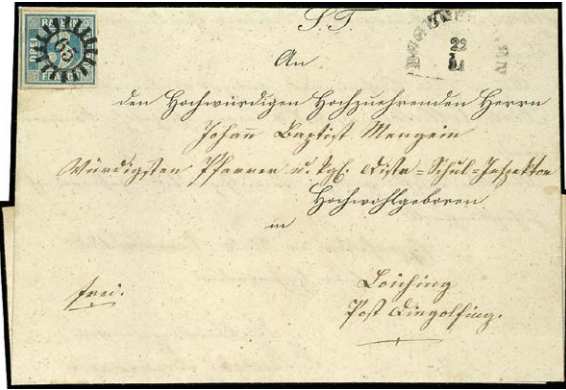 S. T.
An
den Hochwürdigen Hochzuehrenden Herrn
Johann Baptist Mengein
Würdigsten Pfarrer u. kgl. Distr=Schul=Inspektor
Hochwohlgeboren
in
Loiching
Post Dingolfing.
frei.
BA
DREI
65
22